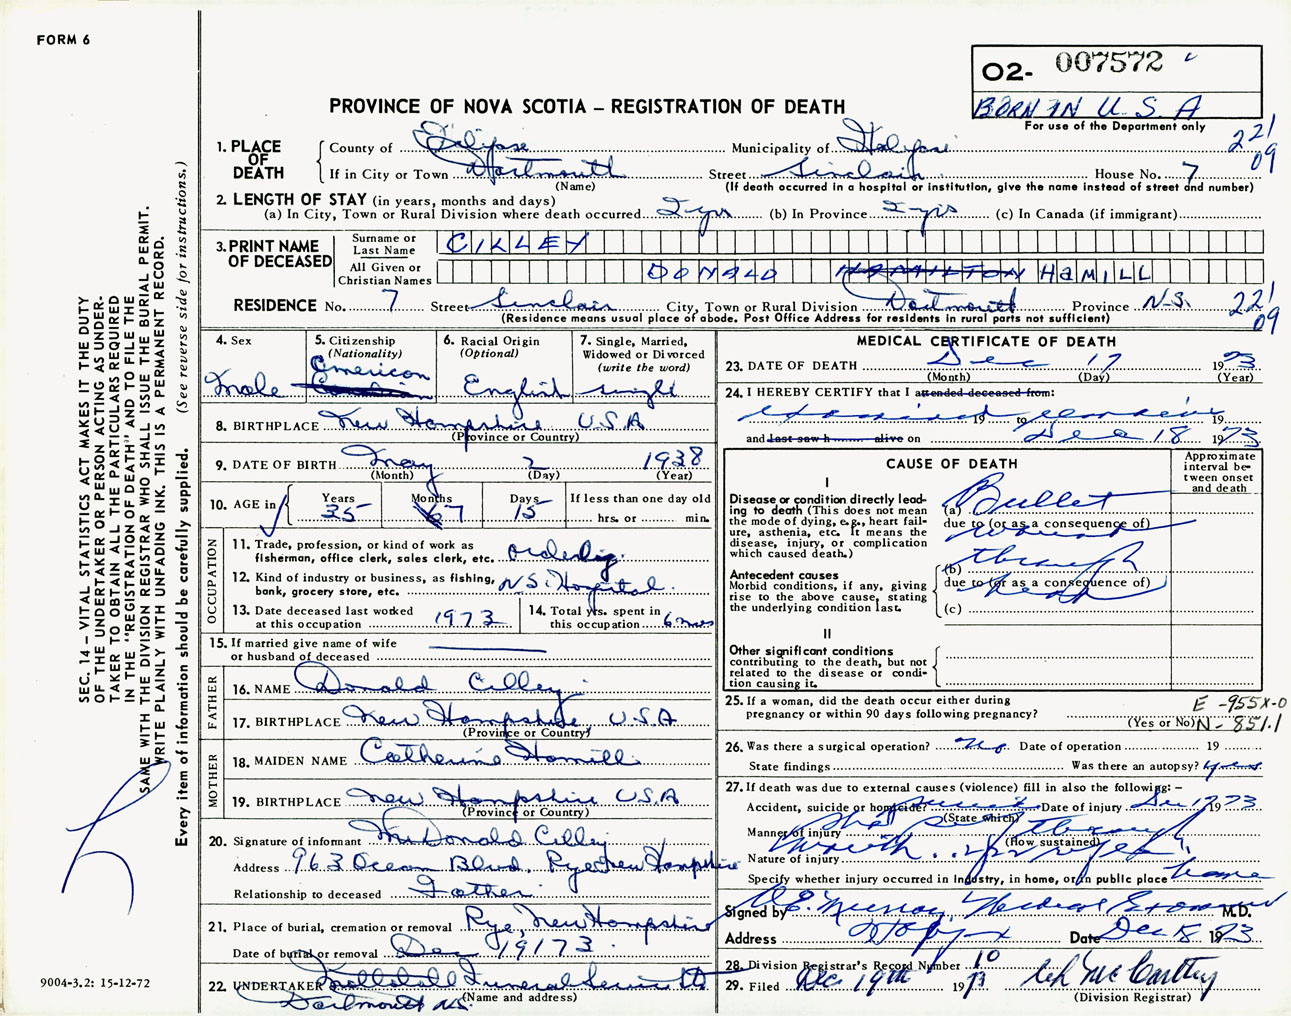 FORM 6
O2- 007572
BORN IN U.S.A
For use of the Department only
PROVINCE OF NOVA SCOTIA – REGISTRATION OF DEATH
1. PLACE OF DEATH
County of Halifax Municipality of Halifax
221
09
If in City or Town Dartmouth Street Sinclair House No. 7
(Name) (If death occurred in a hospital or institution, give the name instead of street and number)
2. LENGTH OF STAY (in years, months and days)
(a) In City, Town or Rural Division where death occurred 2 yrs (b) In Province 2 yrs (c) In Canada (if immigrant)
3. PRINT NAME OF DECEASED
Surname or Last Name CILLEY
All Given or Christian Names DONALD HAMILTON HAMILL
RESIDENCE No. 7 Street Sinclair City, Town or Rural Division Dartmouth Province N.S.
221
09
(Residence means usual place of abode. Post Office Address for residents in rural parts not sufficient)
4. Sex
Male
5. Citizenship
(Nationality)
American
6. Racial Origin
(Optional)
English
7. Single, Married,
Widowed or Divorced
(write the word)
single
8. BIRTHPLACE New Hampshire U.S.A
(Province or Country)
9. DATE OF BIRTH May 2 1938
(Month) (Day) (Year)
10. AGE in
Years 35
Months 7
Days 15
If less than one day old
hrs. or min.
OCCUPATION
11. Trade, profession, or kind of work as
fisherman, office clerk, sales clerk, etc. orderly
12. Kind of industry or business, as fishing,
bank, grocery store, etc. N.S. Hospital
13. Date deceased last worked
at this occupation 1973
14. Total yrs. spent in
this occupation 6 mos
15. If married give name of wife
or husband of deceased
FATHER
16. NAME Donald Cilley
17. BIRTHPLACE New Hampshire U.S.A
(Province or Country)
MOTHER
18. MAIDEN NAME Catherine Hamill
19. BIRTHPLACE New Hampshire U.S.A
(Province or Country)
20. Signature of informant Mr Donald Cilley
Address 963 Ocean Blvd. Rye New Hampshire
Relationship to deceased Father
21. Place of burial, cremation or removal Rye, New Hampshire
Date of burial or removal Dec 19 1973
22. UNDERTAKER Funeral Service Ltd
(Name and address)
Dartmouth N.S.
MEDICAL CERTIFICATE OF DEATH
23. DATE OF DEATH Dec 17 1973
(Month) (Day) (Year)
24. I HEREBY CERTIFY that I attended deceased from:
examined 19 to remains 19
and last saw h alive on Dec 18 1973
CAUSE OF DEATH
Approximate interval between onset and death
I
Disease or condition directly leading to death (This does not mean the mode of dying, e.g., heart failure, asthenia, etc. It means the disease, injury, or complication which caused death.)
(a) Bullet
due to (or as a consequence of)
wound
Antecedent causes
Morbid conditions, if any, giving rise to the above cause, stating the underlying condition last.
(b) through
due to (or as a consequence of)
head
(c)
II
Other significant conditions
contributing to the death, but not related to the disease or condition causing it.
25. If a woman, did the death occur either during
pregnancy or within 90 days following pregnancy?
(Yes or No)
E -955X-0
N- 851.1
26. Was there a surgical operation? No Date of operation 19
State findings Was there an autopsy? yes
27. If death was due to external causes (violence) fill in also the following: –
Accident, suicide or homicide? suicide Date of injury Dec 17 1973
(State which)
Manner of injury Shot self through
(How sustained)
Nature of injury mouth .22 rifle
Specify whether injury occurred in Industry, in home, or in public place home
Signed by Murray, Medical Examiner M.D.
Address Halifax Date Dec 18 1973
28. Division Registrar's Record Number 10
29. Filed Dec 19th 1973 McCarthy
(Division Registrar)
SEC. 14 – VITAL STATISTICS ACT MAKES IT THE DUTY
OF THE UNDERTAKER OR PERSON ACTING AS UNDERTAKER TO OBTAIN ALL THE PARTICULARS REQUIRED
IN THE "REGISTRATION OF DEATH" AND TO FILE THE
SAME WITH THE DIVISION REGISTRAR WHO SHALL ISSUE THE BURIAL PERMIT.
WRITE PLAINLY WITH UNFADING INK. THIS IS A PERMANENT RECORD.
Every item of information should be carefully supplied. (See reverse side for instructions.)
9004-3.2: 15-12-72